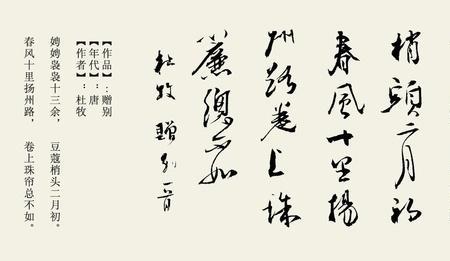 梢頭二月初
春風十里揚
州路卷上珠
簾總不如
杜牧贈別一首
【作品】：赠别
【年代】：唐
【作者】：杜牧
娉娉袅袅十三余， 豆蔻梢头二月初。
春风十里扬州路， 卷上珠帘总不如。